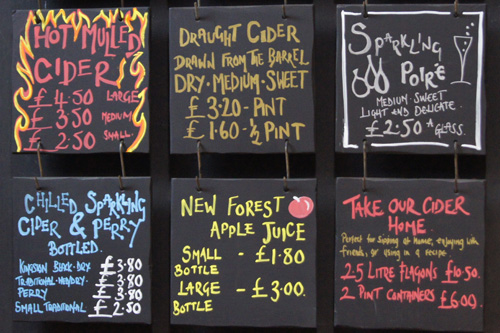 HOT MULLED
CIDER!
£ 4·50 LARGE
£ 3·50 MEDIUM
£ 2·50 SMALL
DRAUGHT CIDER
DRAWN FROM THE BARREL
DRY·MEDIUM·SWEET
£ 3·20 - PINT
£ 1·60 - ½ PINT
SPARKLING
POIRÉ
MEDIUM SWEET
LIGHT AND DELICATE
£2·50 A GLASS.
CHILLED SPARKLING
CIDER & PERRY
BOTTLED.
KINGSTON BLACK·DRY £3·80
TRADITIONAL·MED/DRY £3·80
PERRY £3·80
SMALL TRADITIONAL £2·50
NEW FOREST
APPLE JUICE
SMALL BOTTLE - £1·80
LARGE BOTTLE - £3·00
TAKE OUR CIDER
HOME
Perfect for sipping at home, enjoying with
friends, or using in a recipe.
2·5 LITRE FLAGONS £10·50
2 PINT CONTAINERS £6·00